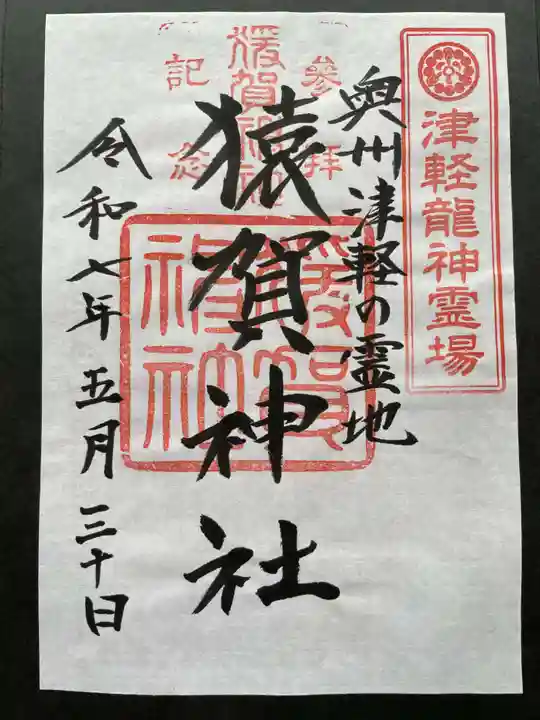 津軽龍神霊場
奥州津軽の霊地
参拝
猿賀神社
猿賀神社
猿賀神社
記念
令和七年五月三十日